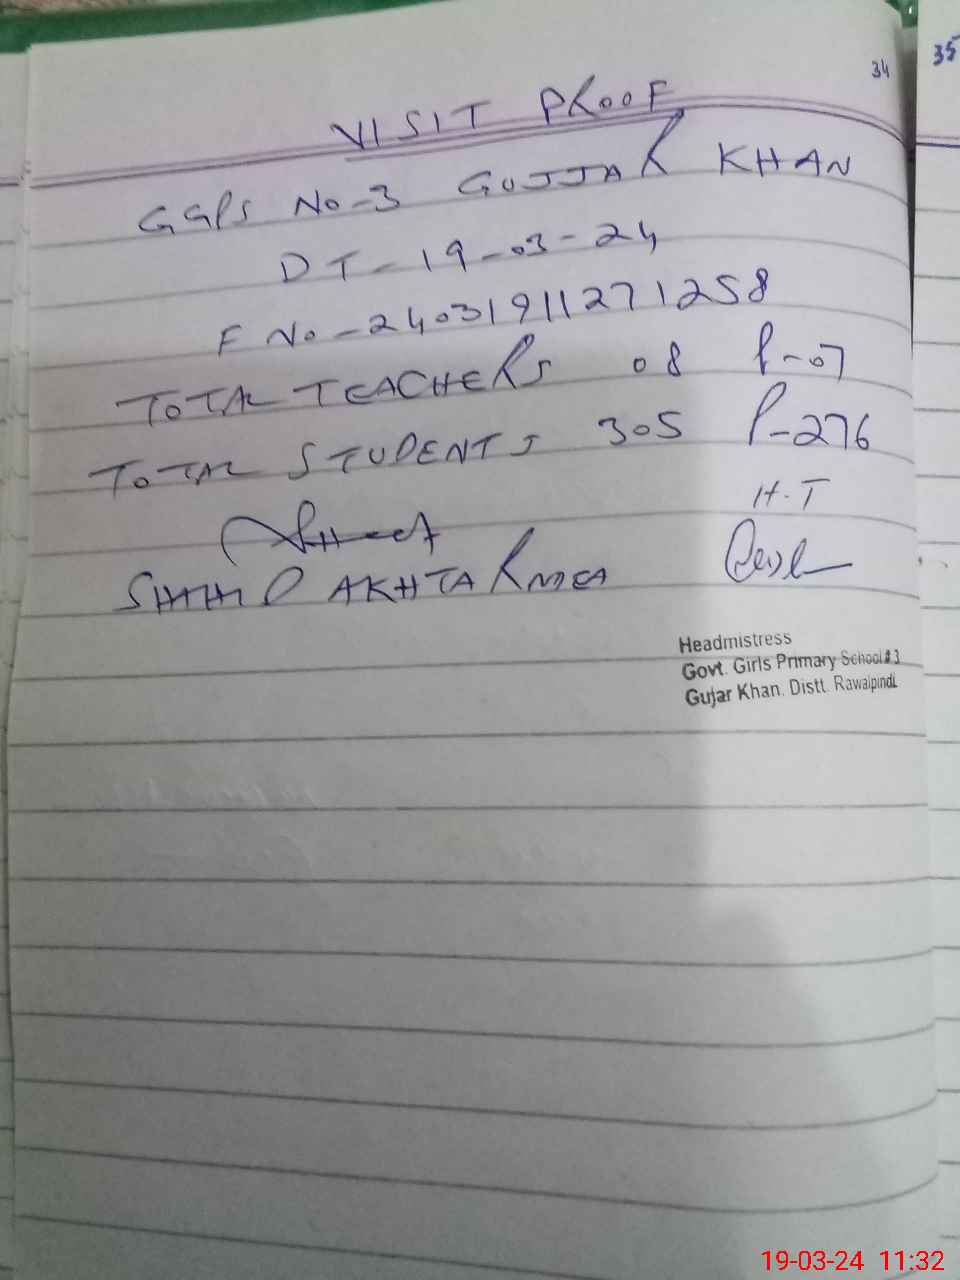 34
35
VISIT PROOF
GGPS No-3 GUJJAR KHAN
DT-19-03-24
F No-24031911271258
TOTAL TEACHERS 08 P-07
TOTAL STUDENTS 305 P-276
H.T
SHAHID AKHTAR MEA
Headmistress
Govt. Girls Primary School # 3
Gujar Khan. Distt. Rawalpindi
19-03-24 11:32